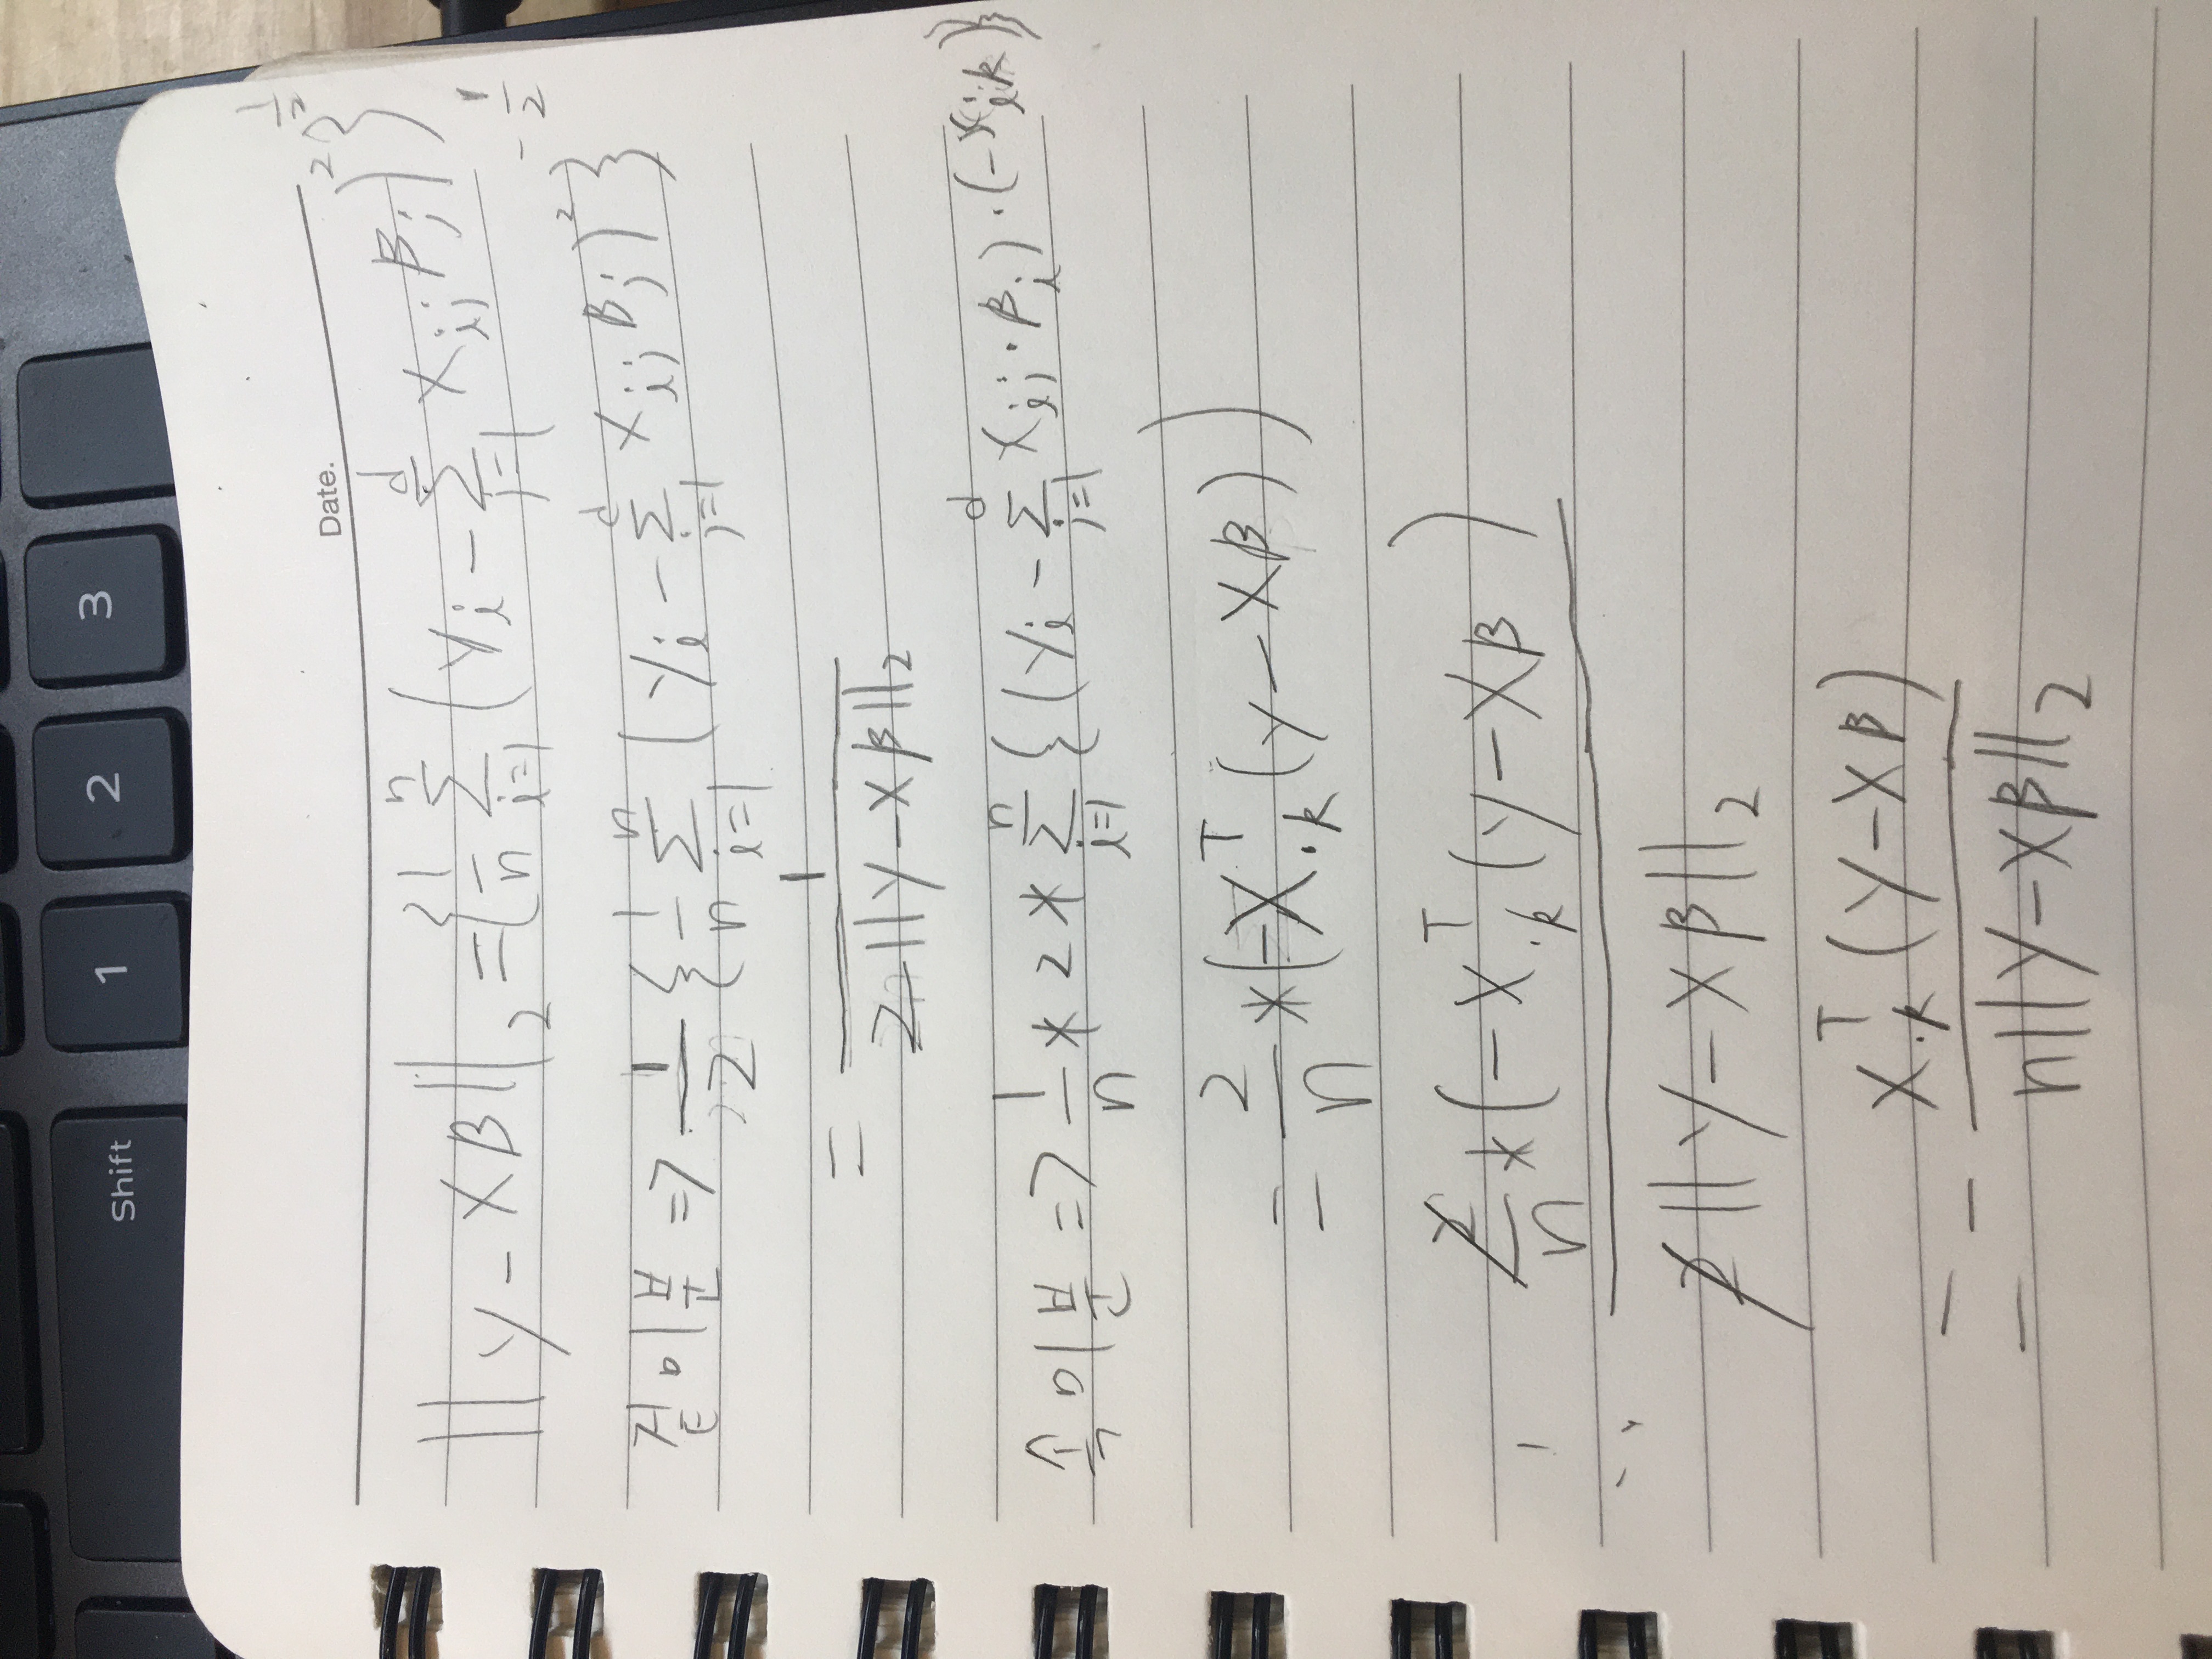 Shift 1 2 3
Date.
||y-Xβ||₂ = {1/n Σ_{i=1}^{n} (y_i - Σ_{j=1}^{d} X_{ij} β_j)²}^{1/2}
겉미분 => 1/2 {1/n Σ_{i=1}^{n} (y_i - Σ_{j=1}^{d} X_{ij} β_j)²}^{-1/2}
= 1/(2||y-Xβ||₂)
속미분 => 1/n * 2 * Σ_{i=1}^{n} {(y_i - Σ_{j=1}^{d} X_{ij}·β_j)·(-X_{ik})}
= 2/n * (-X_{·k}^T (y-Xβ))
2/n * (-X_{·k}^T (y-Xβ)
2||y-Xβ||₂
= - X_{·k}^T (y-Xβ)
n||y-Xβ||₂